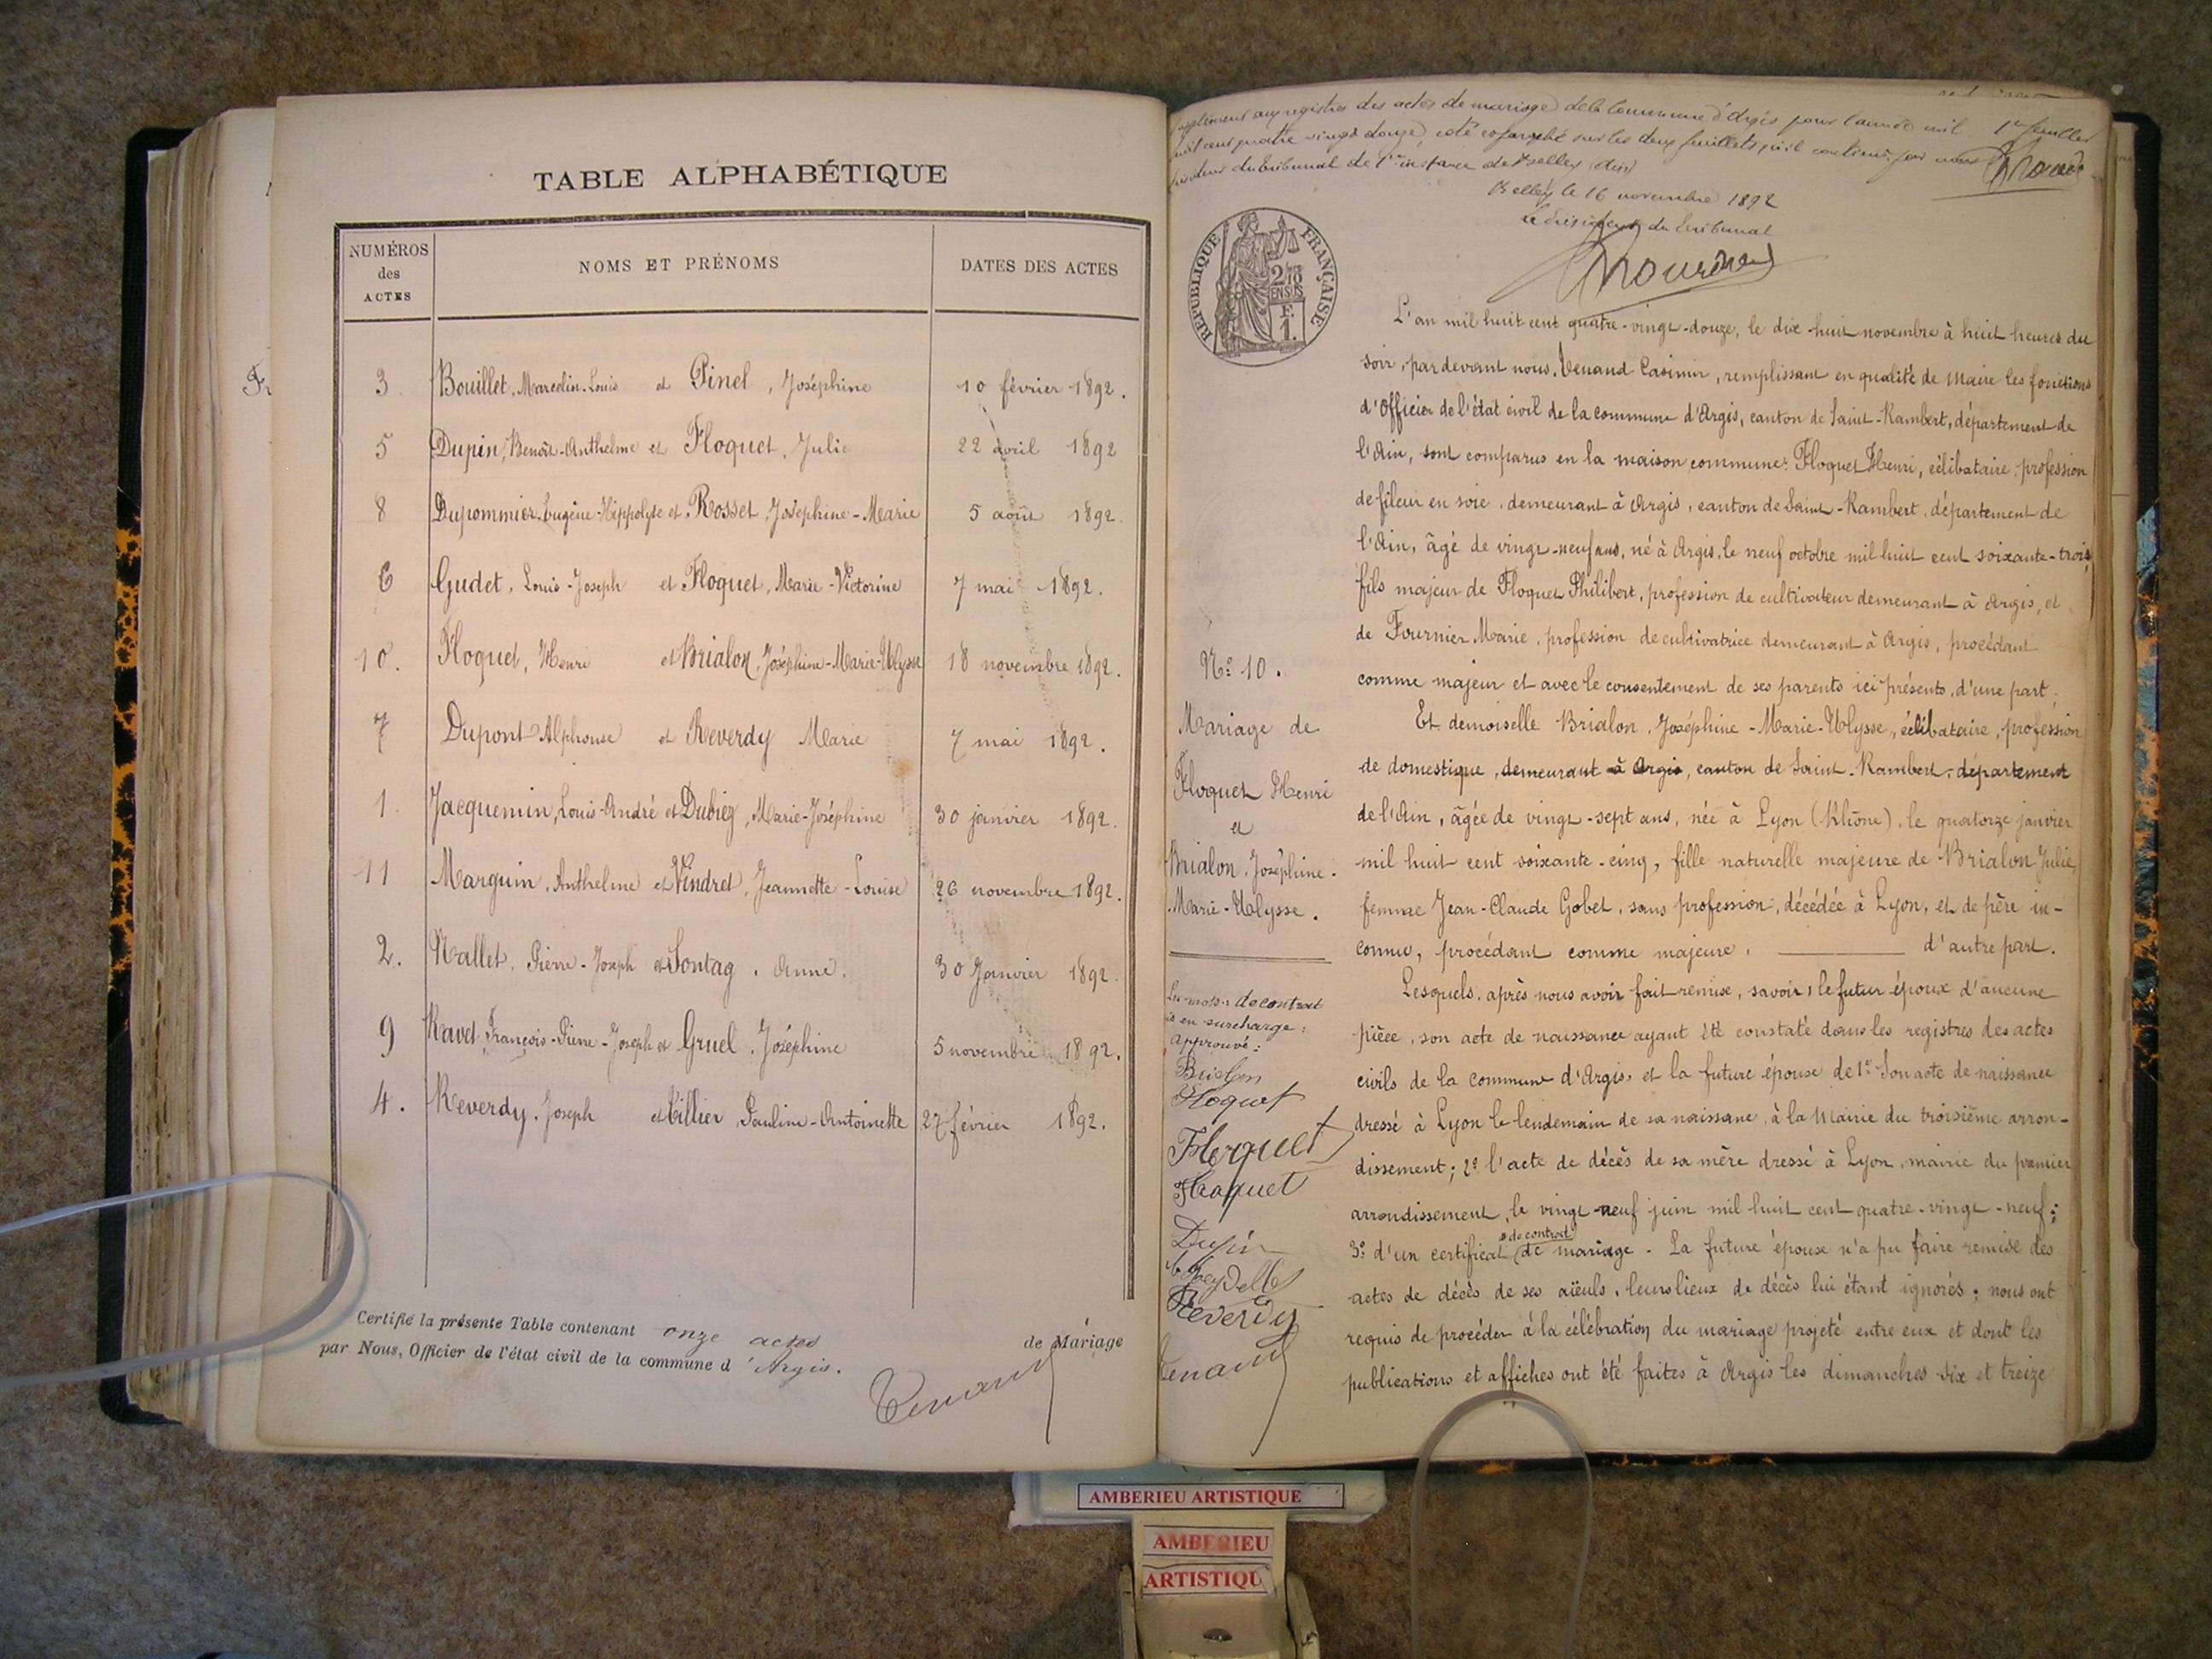 TABLE ALPHABÉTIQUE
NUMÉROS des ACTES
NOMS ET PRÉNOMS
DATES DES ACTES
3 Bouillet, Marcelin-Louis et Pinel, Joséphine 10 février 1892.
5 Dupin, Benoît-Anthelme et Floquet, Julie 22 avril 1892
8 Dupommier, Eugène-Hippolyte et Rosset, Joséphine-Marie 5 août 1892.
6 Gudet, Louis-Joseph et Floquet, Marie-Victorine 7 mai 1892.
10. Floquet, Henri et Brialon, Joséphine-Marie-Ulysse 18 novembre 1892.
7 Dupont Alphonse et Reverdy Marie 7 mai 1892.
1. Jacquemin, Louis-André et Dubiez, Marie-Joséphine 30 janvier 1892.
11 Marguin, Anthelme et Vindret, Jeannette-Louise 26 novembre 1892.
2. Nallet, Pierre-Joseph et Sontag, Anne. 30 Janvier 1892.
9 Ravet François-Pierre-Joseph et Gruel, Joséphine 5 novembre 1892.
4. Reverdy, Joseph et Tillier, Pauline-Antoinette 27 février 1892.
Certifié la présente Table contenant onze actes de Mariage
par Nous, Officier de l'état civil de la commune d'Argis.
Tenand
registres des actes de mariage de la Commune d'Argis pour l'année mil 1er feuillet
huit cent quatre vingt douze, coté et paraphé sur les deux feuillets qu'il contient par nous
du tribunal de 1ère instance de Belley (Ain)
Belley le 16 novembre 1892
Le Président du Tribunal
RÉPUBLIQUE FRANÇAISE
2/10 EN SUS
F.
1.
L'an mil huit cent quatre-vingt-douze, le dix-huit novembre à huit heures du
soir, par devant nous, Tenand Casimir, remplissant en qualité de Maire les fonctions
d'Officier de l'état civil de la commune d'Argis, canton de Saint-Rambert, département de
l'Ain, sont comparus en la maison commune: Floquet Henri, célibataire, profession
de fileur en soie, demeurant à Argis, canton de Saint-Rambert, département de
l'Ain, âgé de vingt-neuf ans, né à Argis, le neuf octobre mil huit cent soixante-trois,
fils majeur de Floquet Philibert, profession de cultivateur demeurant à Argis, et
de Fournier Marie, profession de cultivatrice demeurant à Argis, procédant
comme majeur et avec le consentement de ses parents ici présents, d'une part;
Et demoiselle Brialon, Joséphine-Marie-Ulysse, célibataire, profession
de domestique, demeurant à Argis, canton de Saint-Rambert, département
de l'Ain, âgée de vingt-sept ans, née à Lyon (Rhône), le quatorze janvier
mil huit cent soixante-cinq, fille naturelle majeure de Brialon Julie,
femme Jean-Claude Gobet, sans profession, décédée à Lyon, et de père in-
connu, procédant comme majeure, d'autre part.
Lesquels, après nous avoir fait remise, savoir, le futur époux d'aucune
pièce, son acte de naissance ayant été constaté dans les registres des actes
civils de la commune d'Argis, et la future épouse de 1° Son acte de naissance
dressé à Lyon le lendemain de sa naissance, à la Mairie du troisième arron-
dissement; 2° l'acte de décès de sa mère dressé à Lyon, mairie du premier
arrondissement, le vingt-neuf juin mil huit cent quatre-vingt-neuf;
3° d'un certificat de contrat de mariage. La future épouse n'a pu faire remise des
actes de décès de ses aïeuls, leurs lieux de décès lui étant ignorés; nous ont
requis de procéder à la célébration du mariage projeté entre eux et dont les
publications et affiches ont été faites à Argis les dimanches six et treize
N° 10.
Mariage de
Floquet Henri
et
Brialon, Joséphine-
Marie-Ulysse.
Les mots: de contrat
en surcharge:
approuvé:
Brialon
Floquet
Floquet
Floquet
Dupin
Reverdy
Tenand
AMBERIEU ARTISTIQUE
AMBERIEU
ARTISTIQU